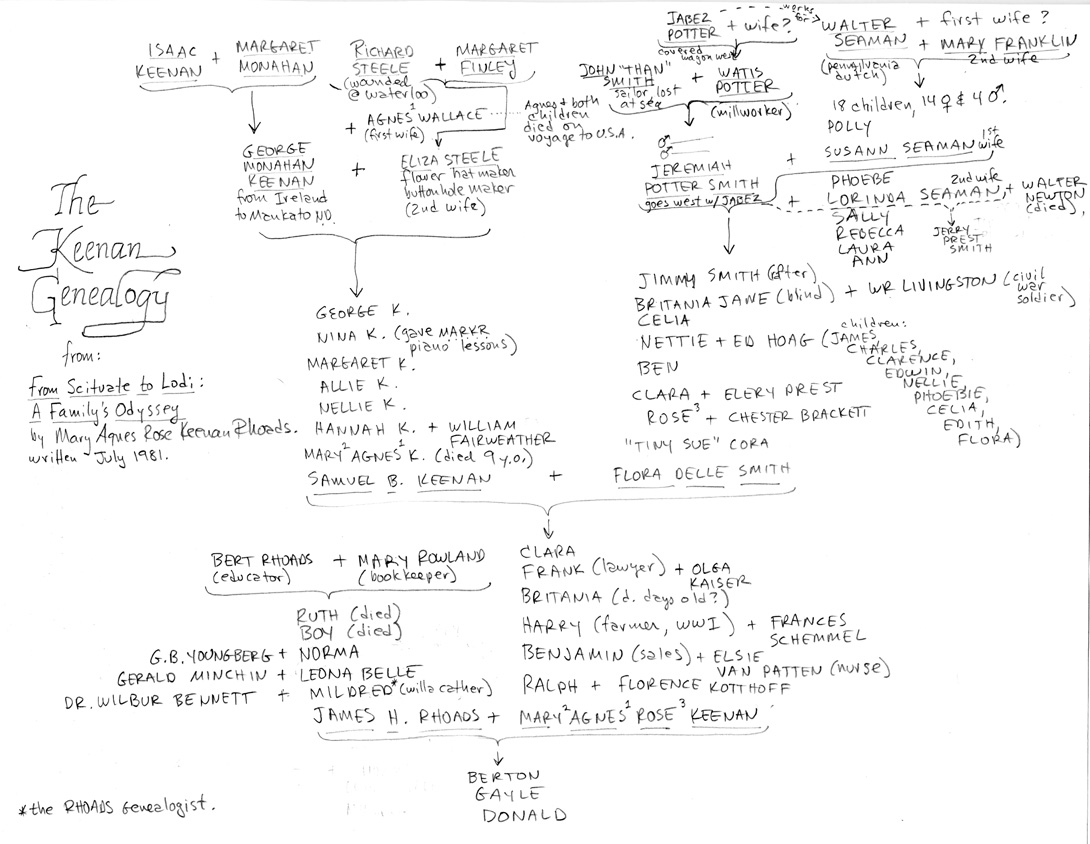 The
Keenan
Genealogy
from:
From Scituate to Lodi:
A Family's Odyssey
by Mary Agnes Rose Keenan Rhoads.
written - July 1981.
ISAAC
KEENAN
+
MARGARET
MONAHAN
RICHARD
STEELE
(wounded
@ waterloo)
+
MARGARET
FINLEY
+ AGNES¹ WALLACE
(first wife)
Agnes & both
children
died on
voyage to U.S.A.
GEORGE
MONAHAN
KEENAN
from Ireland
to Mankato ND.
+
ELIZA STEELE
flower hat maker
buttonhole maker
(2nd wife)
JABEZ
POTTER
+ wife?
works
for
covered
wagon west
WALTER
SEAMAN
(pennsylvania
dutch)
+ first wife?
+ MARY FRANKLIN
2nd wife
JOHN "THAN"
SMITH
sailor, lost
at sea
+
WATIS
POTTER
(millworker)
18 children, 14♀ & 4♂.
POLLY
SUSANN SEAMAN 1st
wife
♂
♂
JEREMIAH
POTTER SMITH
goes west w/ JABEZ
+
+
PHOEBE
LORINDA SEAMAN
2nd wife
+ WALTER
NEWTON
(died),
SALLY
REBECCA
LAURA
ANN
JERRY
PREST
SMITH
GEORGE K.
NINA K. (gave MARKR
piano lessons)
MARGARET K.
ALLIE K.
NELLIE K.
HANNAH K. + WILLIAM
FAIRWEATHER
MARY² AGNES¹ K. (died 9 y.o.)
SAMUEL B. KEENAN
+
FLORA DELLE SMITH
JIMMY SMITH (fifter)
BRITANIA JANE (blind) + WR LIVINGSTON (civil
war
soldier)
CELIA
NETTIE + ED HOAG (
children:
JAMES,
CHARLES,
CLARENCE,
EDWIN,
NELLIE,
PHOEBIE,
CELIA,
EDITH,
FLORA)
BEN
CLARA + ELERY PREST
ROSE³ + CHESTER BRACKETT
"TINY SUE" CORA
BERT RHOADS
(educator)
+
MARY ROWLAND
(bookkeeper)
RUTH (died)
BOY (died)
G.B. YOUNGBERG + NORMA
GERALD MINCHIN + LEONA BELLE
DR. WILBUR BENNETT + MILDRED* (willa cather)
JAMES H. RHOADS + MARY² AGNES¹ ROSE³ KEENAN
CLARA
FRANK (lawyer) + OLGA
KAISER
BRITANIA (d. days old?)
HARRY (farmer, WWI) + FRANCES
SCHEMMEL
BENJAMIN (sales) + ELSIE
VAN PATTEN (nurse)
RALPH + FLORENCE KOTTHOFF
BERTON
GAYLE
DONALD
*the RHOADS Genealogist.